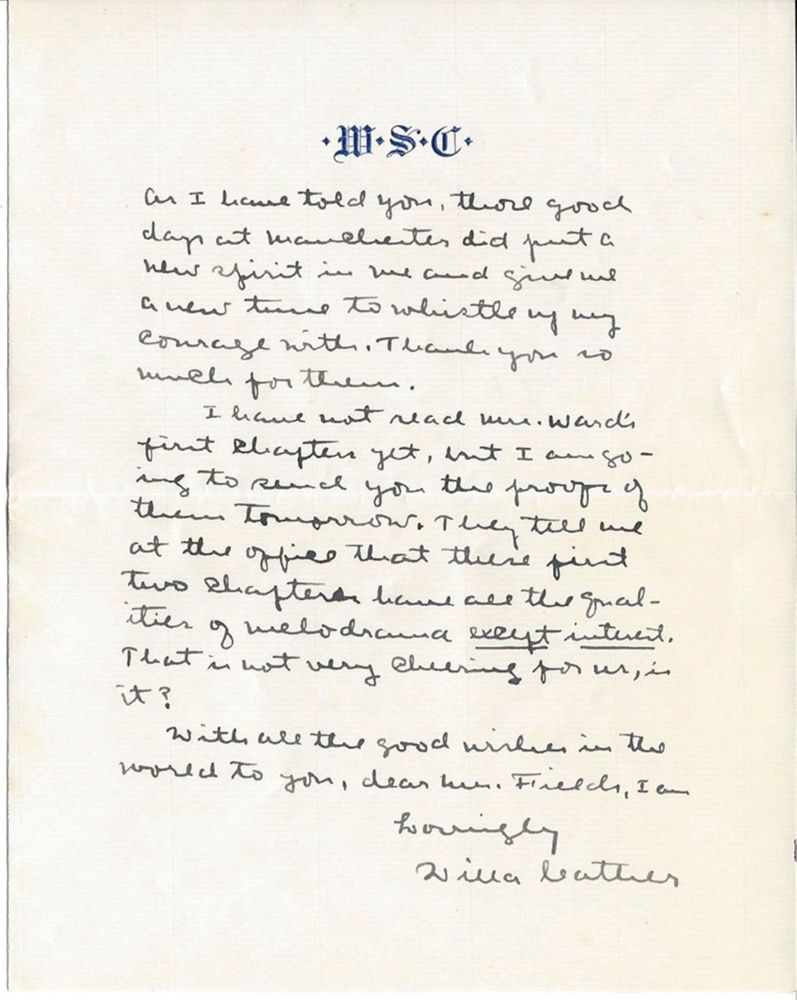 ·W·S·C·
As I have told you, those good
days at Manchester did put a
new spirit in me and give me
a new tune to whistle up my
courage with. Thank you so
much for them.
I have not read Mrs. Ward's
first chapters yet, but I am go-
ing to send you the proofs of
them tomorrow. They tell me
at the office that these first
two chapters have all the qual-
ities of melodrama except interest.
That is not very cheering for us, is
it?
With all the good wishes in the
world to you, dear Mrs. Fields, I am
Lovingly
Willa Cather